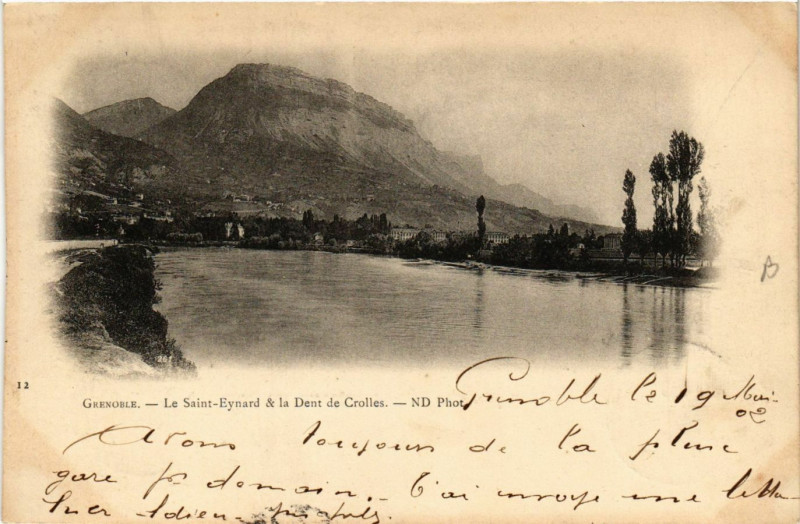 12
GRENOBLE. — Le Saint-Eynard & la Dent de Crolles. — ND Phot.
B
Grenoble le 19 Mai
02
Avons toujours de la pluie
gare pr demain. J'ai envoyé une lettre
hier